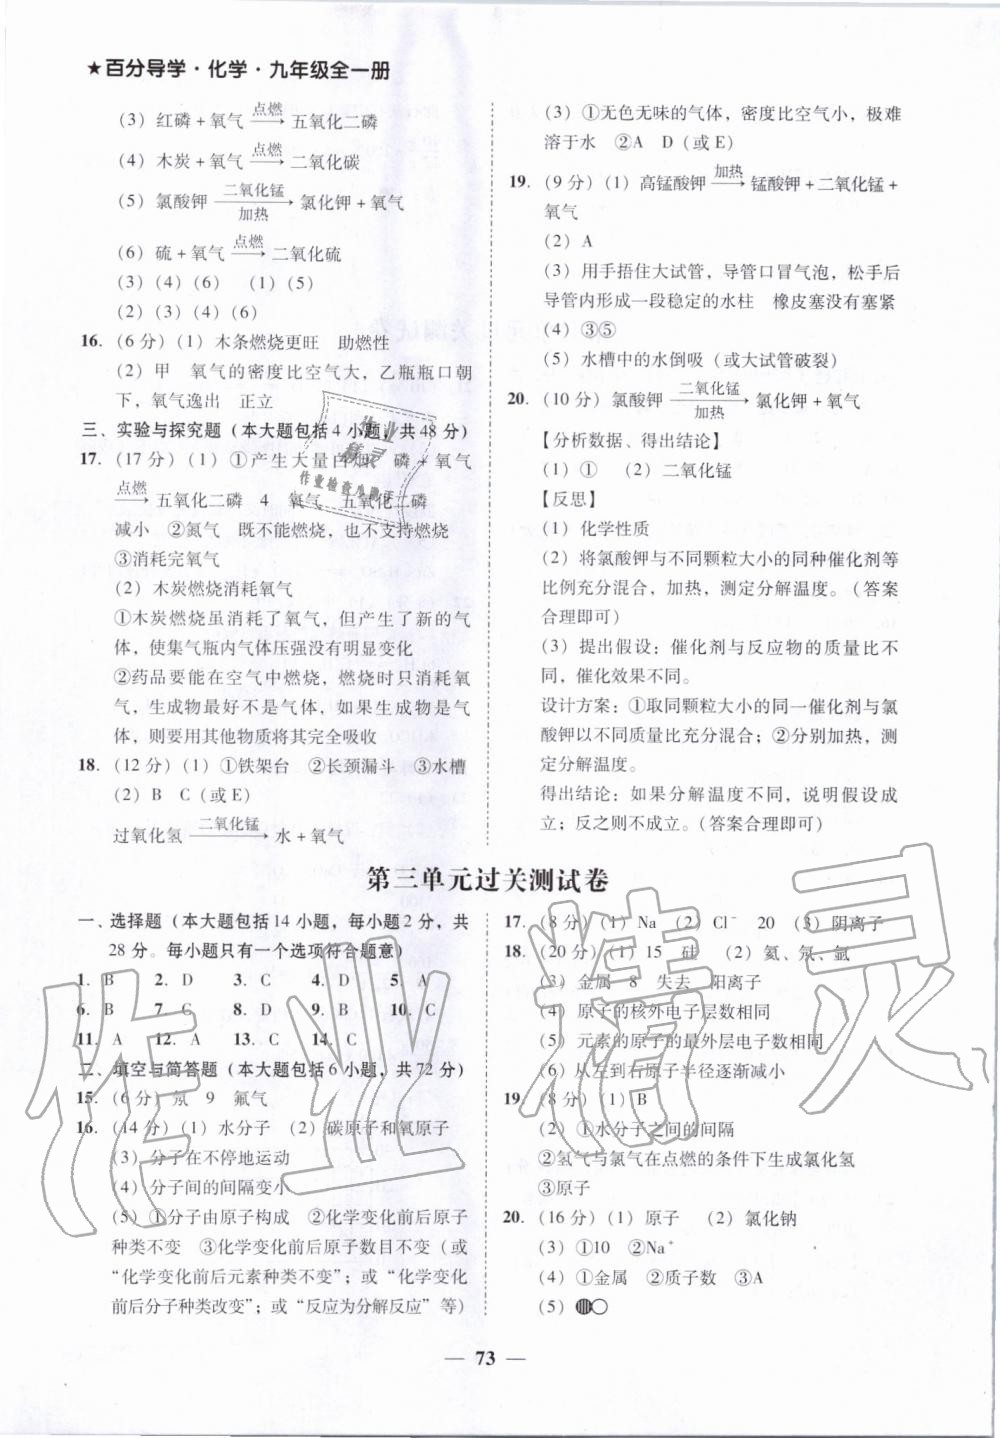 ★百分导学·化学·九年级全一册
(3) 红磷+氧气 —点燃→ 五氧化二磷
(4) 木炭+氧气 —点燃→ 二氧化碳
(5) 氯酸钾 —二氧化锰/加热→ 氯化钾+氧气
(6) 硫+氧气 —点燃→ 二氧化硫
(3)(4)(6) (1)(5)
(2)(3)(4)(6)
16. (6分)(1) 木条燃烧更旺 助燃性
(2) 甲 氧气的密度比空气大,乙瓶瓶口朝
下,氧气逸出 正立
三、实验与探究题(本大题包括4小题,共48分)
17. (17分)(1) ①产生大量白烟 磷+氧气
—点燃→ 五氧化二磷 4 氧气 五氧化二磷
减小 ②氮气 既不能燃烧,也不支持燃烧
③消耗完氧气
(2) 木炭燃烧消耗氧气
①木炭燃烧虽消耗了氧气,但产生了新的气
体,使集气瓶内气体压强没有明显变化
②药品要能在空气中燃烧,燃烧只消耗氧
气,生成物最好不是气体,如果生成物是气
体,则要用其他物质将其完全吸收
18. (12分)(1) ①铁架台 ②长颈漏斗 ③水槽
(2) B C(或E)
过氧化氢 —二氧化锰→ 水+氧气
(3) ①无色无味的气体,密度比空气小,极难
溶于水 ②A D(或E)
19. (9分)(1) 高锰酸钾 —加热→ 锰酸钾+二氧化锰+
氧气
(2) A
(3) 用手捂住大试管,导管口冒气泡,松手后
导管内形成一段稳定的水柱 橡皮塞没有塞紧
(4) ③⑤
(5) 水槽中的水倒吸(或大试管破裂)
20. (10分) 氯酸钾 —二氧化锰/加热→ 氯化钾+氧气
【分析数据、得出结论】
(1) ① (2) 二氧化锰
【反思】
(1) 化学性质
(2) 将氯酸钾与不同颗粒大小的同种催化剂等
比例充分混合,加热,测定分解温度。(答案
合理即可)
(3) 提出假设:催化剂与反应物的质量比不
同,催化效果不同。
设计方案:①取同颗粒大小的同一催化剂与氯
酸钾以不同质量比充分混合;②分别加热,测
定分解温度。
得出结论:如果分解温度不同,说明假设成
立;反之则不成立。(答案合理即可)
第三单元过关测试卷
一、选择题(本大题包括14小题,每小题2分,共
28分。每小题只有一个选项符合题意)
1. B 2. D 3. C 4. D 5. A
6. B 7. C 8. D 9. B 10. C
11. A 12. A 13. C 14. C
二、填空与简答题(本大题包括6小题,共72分)
15. (6分) 氖 9 氟气
16. (14分)(1) 水分子 (2) 碳原子和氧原子
(3) 分子在不停地运动
(4) 分子间的间隔变小
(5) ①分子由原子构成 ②化学变化前后原子
种类不变 ③化学变化前后原子数目不变(或
“化学变化前后元素种类不变”;或“化学变化
前后分子种类改变”;或“反应为分解反应”等)
17. (8分)(1) Na (2) Cl⁻ 20 (3) 阴离子
18. (20分)(1) 15 硅 (2) 氦、氖、氩
(3) 金属 8 失去 阳离子
(4) 原子的核外电子层数相同
(5) 元素的原子的最外层电子数相同
(6) 从左到右原子半径逐渐减小
19. (8分)(1) B
(2) ①水分子之间的间隔
②氢气与氯气在点燃的条件下生成氯化氢
③原子
20. (16分)(1) 原子 (2) 氯化钠
(3) ①10 ②Na⁺
(4) ①金属 ②质子数 ③A
(5)
— 73 —
作业精灵
作业
精灵
作业检查小助手